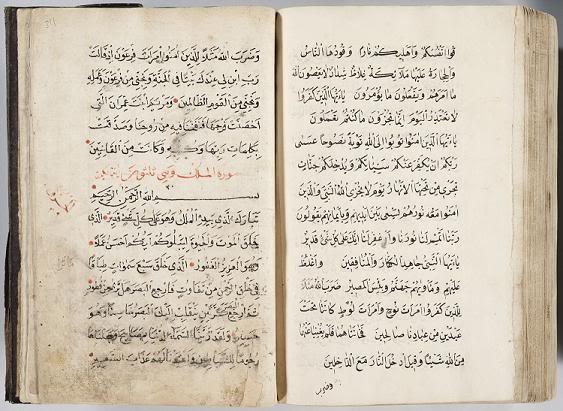 قُوا اَنْفُسَكُمْ وَاَهْلِيكُمْ نَارًا وَقُودُهَا النَّاسُ
وَالْحِجَارَةُ عَلَيْهَا مَلَائِكَةٌ غِلَاظٌ شِدَادٌ لَا يَعْصُونَ اللهَ
مَا اَمَرَهُمْ وَيَفْعَلُونَ مَا يُؤْمَرُونَ يَايُّهَا الَّذِينَ كَفَرُوا
لَا تَعْتَذِرُوا الْيَوْمَ اِنَّمَا تُجْزَوْنَ مَا كُنْتُمْ تَعْمَلُونَ
يَايُّهَا الَّذِينَ اٰمَنُوا تُوبُوا اِلَى اللهِ تَوْبَةً نَصُوحًا عَسَى
رَبُّكُمْ اَنْ يُكَفِّرَ عَنْكُمْ سَيِّئَاتِكُمْ وَيُدْخِلَكُمْ جَنَّاتٍ
تَجْرِى مِنْ تَحْتِهَا الْاَنْهَارُ يَوْمَ لَا يُخْزِى اللهُ النَّبِىَّ وَالَّذِينَ
اٰمَنُوا مَعَهُ نُورُهُمْ يَسْعَى بَيْنَ اَيْدِيهِمْ وَبِاَيْمَانِهِمْ يَقُولُونَ
رَبَّنَا اَتْمِمْ لَنَا نُورَنَا وَاغْفِرْ لَنَا اِنَّكَ عَلَى كُلِّ شَىْءٍ قَدِيرٌ
يَايُّهَا النَّبِىُّ جَاهِدِ الْكُفَّارَ وَالْمُنَافِقِينَ وَاغْلُظْ
عَلَيْهِمْ وَمَاْوٰيهُمْ جَهَنَّمُ وَبِئْسَ الْمَصِيرُ ضَرَبَ اللهُ مَثَلًا
لِلَّذِينَ كَفَرُوا امْرَاَتَ نُوحٍ وَامْرَاَتَ لُوطٍ كَانَتَا تَحْتَ
عَبْدَيْنِ مِنْ عِبَادِنَا صَالِحَيْنِ فَخَانَتَاهُمَا فَلَمْ يُغْنِيَا عَنْهُمَا
مِنَ اللهِ شَيْئًا وَقِيلَ ادْخُلَا النَّارَ مَعَ الدَّاخِلِينَ
وضرب
وَضَرَبَ اللهُ مَثَلًا لِلَّذِينَ اٰمَنُوا امْرَاَتَ فِرْعَوْنَ اِذْ قَالَتْ
رَبِّ ابْنِ لِى عِنْدَكَ بَيْتًا فِى الْجَنَّةِ وَنَجِّنِى مِنْ فِرْعَوْنَ وَعَمَلِهِ
وَنَجِّنِى مِنَ الْقَوْمِ الظَّالِمِينَ وَمَرْيَمَ ابْنَتَ عِمْرَانَ الَّتِى
اَحْصَنَتْ فَرْجَهَا فَنَفَخْنَا فِيهِ مِنْ رُوحِنَا وَصَدَّقَتْ
بِكَلِمَاتِ رَبِّهَا وَكُتُبِهِ وَكَانَتْ مِنَ الْقَانِتِينَ
سورة الملك وهى ثلثون اية
بِسْمِ اللهِ الرَّحْمٰنِ الرَّحِيمِ
تَبَارَكَ الَّذِى بِيَدِهِ الْمُلْكُ وَهُوَ عَلَى كُلِّ شَىْءٍ قَدِيرٌ الَّذِى
خَلَقَ الْمَوْتَ وَالْحَيٰوةَ لِيَبْلُوَكُمْ اَيُّكُمْ اَحْسَنُ عَمَلًا
وَهُوَ الْعَزِيزُ الْغَفُورُ الَّذِى خَلَقَ سَبْعَ سَمٰوَاتٍ طِبَاقًا
مَا تَرَى فِى خَلْقِ الرَّحْمٰنِ مِنْ تَفَاوُتٍ فَارْجِعِ الْبَصَرَ هَلْ تَرَى مِنْ فُطُورٍ
ثُمَّ ارْجِعِ الْبَصَرَ كَرَّتَيْنِ يَنْقَلِبْ اِلَيْكَ الْبَصَرُ خَاسِئًا وَهُوَ
حَسِيرٌ وَلَقَدْ زَيَّنَّا السَّمَاءَ الدُّنْيَا بِمَصَابِيحَ وَجَعَلْنَاهَا
رُجُومًا لِلشَّيَاطِينِ وَاَعْتَدْنَا لَهُمْ عَذَابَ السَّعِيرِ